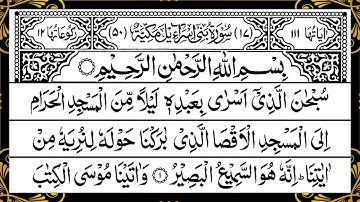 اٰیَاتُهَا ١١١ (١٧) سُوْرَةُ بَنِیْۤ اِسْرَآءِیْلَ مَكِّیَّةٌ (٥٠) رُكُوْعَاتُهَا ١٢
بِسْمِ اللّٰهِ الرَّحْمٰنِ الرَّحِیْمِ
سُبْحٰنَ الَّذِیْۤ اَسْرٰی بِعَبْدِهٖ لَیْلًا مِّنَ الْمَسْجِدِ الْحَرَامِ
اِلَی الْمَسْجِدِ الْاَقْصَا الَّذِیْ بٰرَكْنَا حَوْلَهٗ لِنُرِیَهٗ مِنْ
اٰیٰتِنَا ؕ اِنَّهٗ هُوَ السَّمِیْعُ الْبَصِیْرُ ۝١ وَاٰتَیْنَا مُوْسَی الْكِتٰبَ